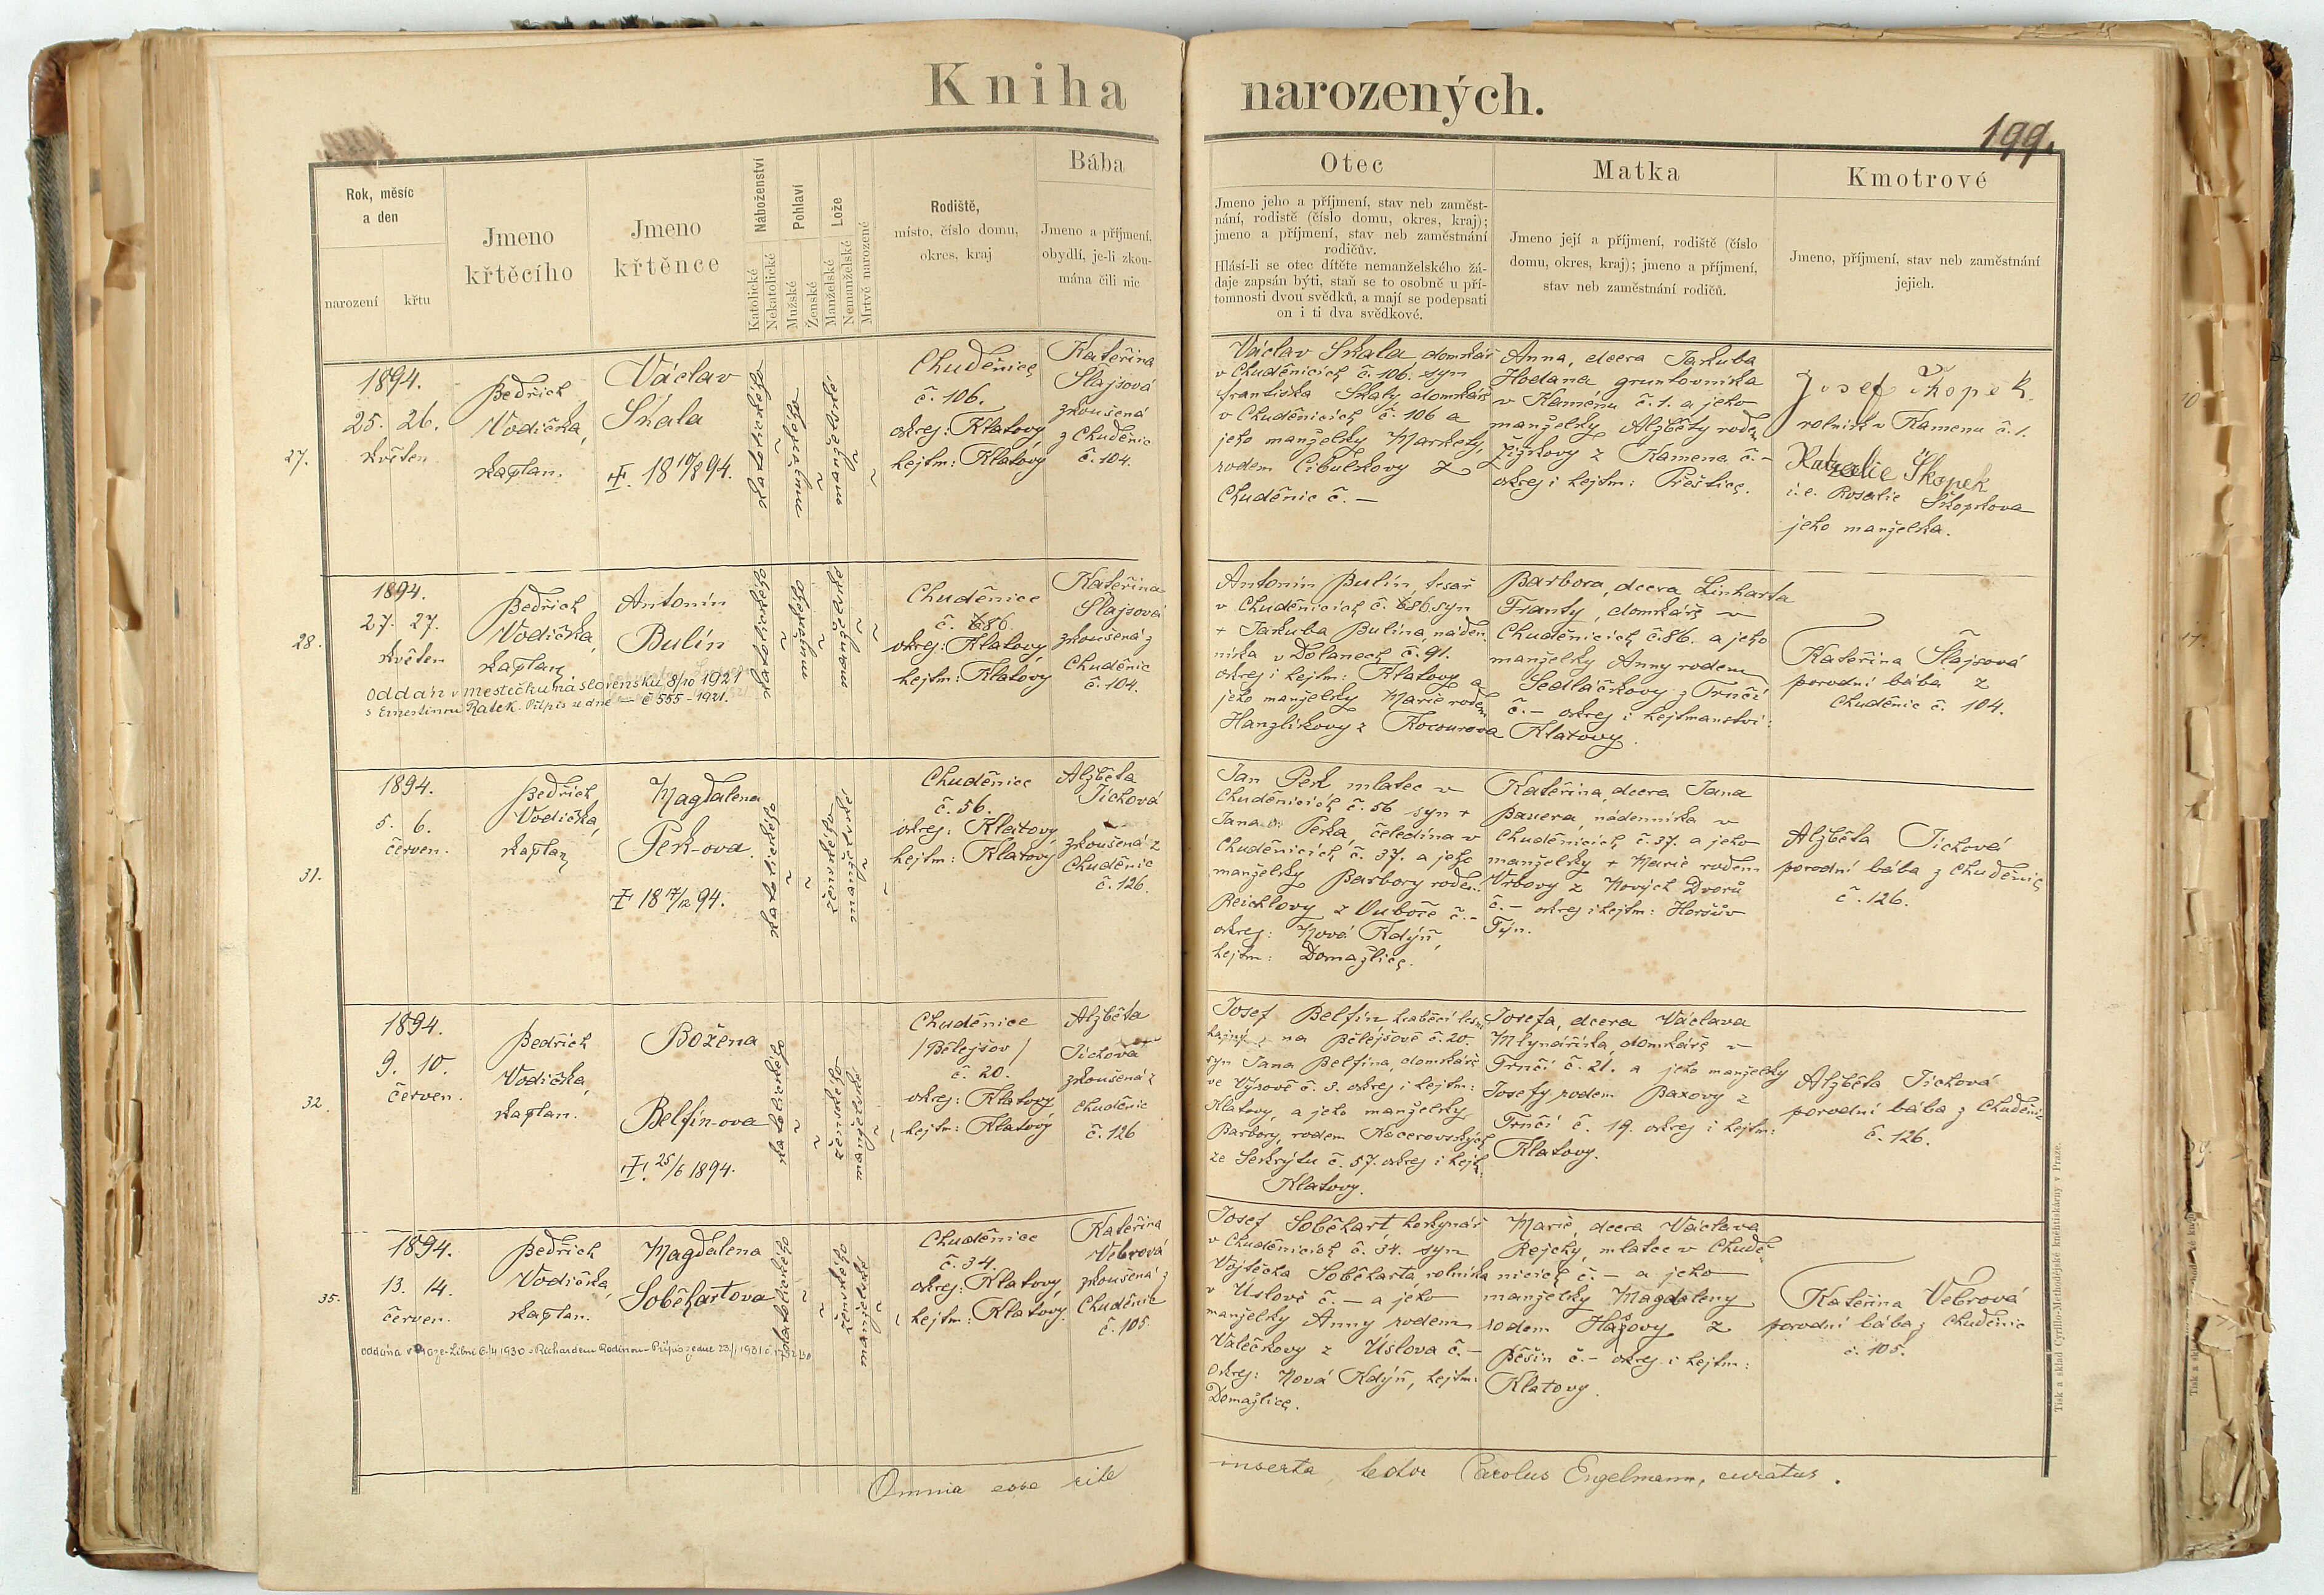 Kniha narozených.
199.
Rok, měsíc
a den
narození
křtu
Jmeno
křtěcího
Jmeno
křtěnce
Náboženství
Katolické
Nekatolické
Pohlaví
Mužské
Ženské
Lože
Manželské
Nemanželské
Mrtvě narozené
Rodiště,
místo, číslo domu,
okres, kraj
Bába
Jmeno a příjmení,
obydlí, je-li zkou-
mána čili nic
Otec
Jmeno jeho a příjmení, stav neb zaměst-
nání, rodistě (číslo domu, okres, kraj);
jmeno a příjmení, stav neb zaměstnání
rodičův.
Hlásí-li se otec dítěte nemanželského žá-
daje zapsán býti, staň se to osobně u pří-
tomnosti dvou svědků, a mají se podepsati
on i ti dva svědkové.
Matka
Jmeno její a příjmení, rodiště (číslo
domu, okres, kraj); jmeno a příjmení,
stav neb zaměstnání rodičů.
Kmotrové
Jmeno, příjmení, stav neb zaměstnání
jejich.
27.
1894.
25. 26.
květen
Bedřich
Vodička,
kaplan.
Václav
Skala
18 17/8 94.
katolického
mužského
manželské
Chuděnice
č. 106.
okres: Klatovy
hejtm: Klatovy
Kateřina
Šlajsová
zkoušená
z Chuděnic
č. 104.
Václav Skala domkář
v Chuděnicích č. 106. syn
Františka Skaly domkáře
v Chuděnicích č. 106 a
jeho manželky Markety,
rodem Cibulkovy z
Chuděnic č. —
Anna, dcera Jakuba
Hodana, gruntovníka
v Kamenu č. 1. a jeho
manželky Alžběty rodem
Žižkovy z Kamena č. —
okres i hejtm: Přeštice.
Josef Škopek
rolník v Kamenu č. 1.
Škopek
i. e. Rosalie Škopkova
jeho manželka.
28.
1894.
27. 27.
květen
Bedřich
Vodička,
kaplan
Antonín
Bulín
katolického
mužského
manželské
Chuděnice
č. 86.
okres: Klatovy,
hejtm: Klatovy
Kateřina
Šlajsová
zkoušená z
Chuděnic
č. 104.
oddán v Mestečku na Slovensku 8/10 1921
s Ernestinou Ratek. Přípis ze dne — č 555 - 1921.
Antonín Bulín, tesař
v Chuděnicích č. 86. syn
+ Jakuba Bulína, náden-
níka v Dolanech č. 91.
okres i hejtm: Klatovy a
jeho manželky Marie rodem
Hanzlíkovy z Kocourova
Barbora, dcera Linharta
Franty, domkáře v
Chuděnicích č. 86. a jeho
manželky Anny rodem
Sedláčkovy z Trnčí
č. — okres i hejtmanství:
Klatovy.
Kateřina Šlajsová
porodní bába z
Chuděnic č. 104.
31.
1894.
5. 6.
červen.
Bedřich
Vodička,
kaplan
Magdalena
Pek-ova.
katolického
ženského
manželské
Chuděnice
č. 56.
okres: Klatovy,
hejtm: Klatovy
Alžběta
Tichová
zkoušená z
Chuděnic
č. 126.
Jan Pek mlatec v
Chuděnicích č. 56 syn +
Jana Peka, čeledína v
Chuděnicích č. 37. a jeho
manželky Barbory rodem
Reichlovy z Ouboče č. —
okres: Nová Kdyň,
hejtm: Domažlice.
Kateřina, dcera Jana
Bauera, nádenníka v
Chuděnicích č. 37. a jeho
manželky + Marie rodem
Vrbovy z Nových Dvorů
č. — okres i hejtm: Horšův
Týn.
Alžběta Tichová
porodní bába z Chuděnic
č. 126.
32.
1894.
9. 10.
červen.
Bedřich
Vodička,
kaplan.
Božena
Belfín-ova
25/6 1894.
katolického
ženského
manželské
Chuděnice
/Bělejšov/
č. 20.
okres: Klatovy
hejtm: Klatovy
Alžběta
Tichova
zkoušená z
Chuděnic
č. 126
Josef Belfín hraběcí lesní
hajný na Bělejšově č. 20.
syn Jana Belfína, domkáře
ve Výrově č. 3. okres i hejtm:
Klatovy, a jeho manželky
Barbory, rodem Kacerovských
ze Sekrýtu č. 57. okres i hejt.
Klatovy.
Josefa, dcera Václava
Mlynáříka, domkáře v
Trnčí č. 21. a jeho manželky
Josefy rodem Baxovy z
Trnčí č. 19. okres i hejtm:
Klatovy.
Alžběta Tichová
porodní bába z Chuděnic
č. 126.
35.
1894.
13. 14.
červen.
Bedřich
Vodička,
kaplan.
Magdalena
Soběhartova
katolického
ženského
manželské
Chuděnice
č. 34.
okres: Klatovy,
hejtm: Klatovy.
Kateřina
Vebrová
zkoušená z
Chuděnic
č. 105
oddána v Praze-Libni 6/4 1930 s Richardem
Josef Soběhart, hokynář
v Chuděnicích č. 34. syn
Vojtěcha Soběharta, rolníka
v Úslově č. — a jeho
manželky Anny rodem
Valečkovy z Úslova č. —
okres: Nová Kdyň, hejtm:
Domažlice.
Marie, dcera Václava
Rejčky, mlatce v Chudě-
nicích č. — a jeho
manželky Magdaleny
rodem
Běšin č. — okres i hejtm:
Klatovy.
Kateřina Vebrová
porodní bába z Chuděnic
č. 105.
Omnia esse rite inserta, Carolus Engelmann, curatus.
Tisk a sklad Cyrillo-Methodějské knihtiskárny v Praze.